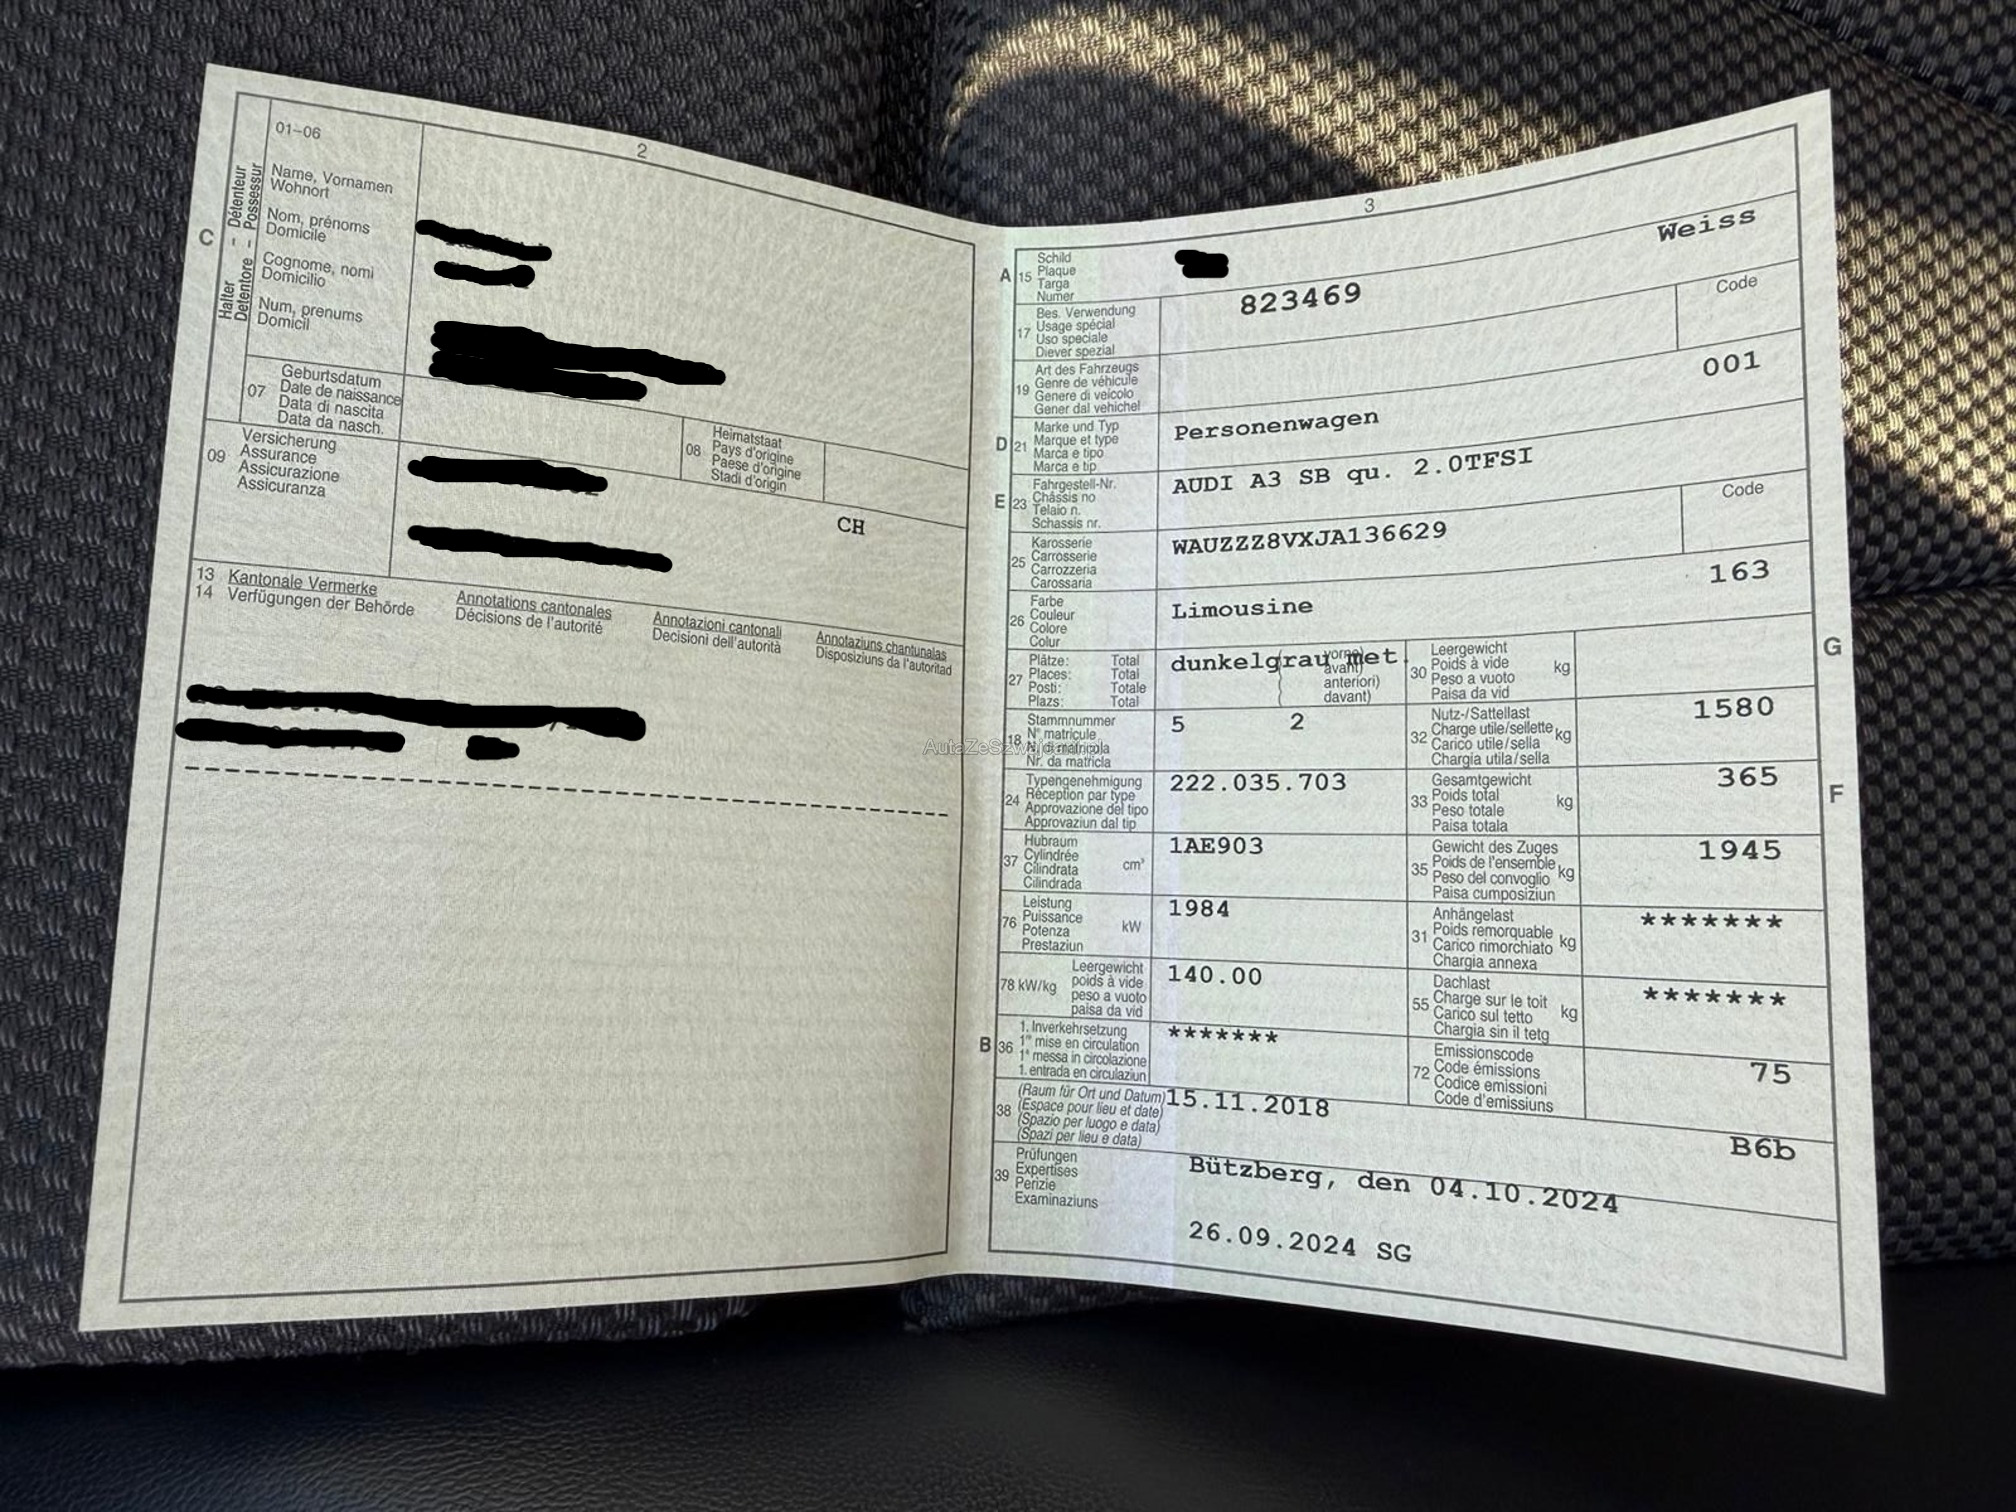 2
01–06
Name, Vornamen
Wohnort
Nom, prénoms
Domicile
Cognome, nomi
Domicilio
Num, prenums
Domicil
C
Halter – Détenteur
Detentore – Possessur
07
Geburtsdatum
Date de naissance
Data di nascita
Data da nasch.
08
Heimatstaat
Pays d'origine
Paese d'origine
Stadi d'origin
CH
09
Versicherung
Assurance
Assicurazione
Assicuranza
13 Kantonale Vermerke
14 Verfügungen der Behörde
Annotations cantonales
Décisions de l'autorité
Annotazioni cantonali
Decisioni dell'autorità
Annotaziuns chantunalas
Disposiziuns da l'autoritad
3
A 15
Schild
Plaque
Targa
Numer
823469
Weiss
17
Bes. Verwendung
Usage spécial
Uso speciale
Diever spezial
Code
19
Art des Fahrzeugs
Genre de véhicule
Genere di veicolo
Gener dal vehichel
Personenwagen
001
D 21
Marke und Typ
Marque et type
Marca e tipo
Marca e tip
AUDI A3 SB qu. 2.0TFSI
E 23
Fahrgestell-Nr.
Châssis no
Telaio n.
Schassis nr.
WAUZZZ8VXJA136629
Code
25
Karosserie
Carrosserie
Carrozzeria
Carossaria
Limousine
163
26
Farbe
Couleur
Colore
Colur
dunkelgrau met.
27
Plätze: Total
Places: Total
Posti: Totale
Plazs: Total
vorne)
avant)
anteriori)
davant)
5 2
G
30
Leergewicht
Poids à vide
Peso a vuoto
Paisa da vid
kg
1580
18
Stammnummer
N° matricule
N. di matricola
Nr. da matricla
222.035.703
32
Nutz-/Sattellast
Charge utile/sellette
Carico utile/sella
Chargia utila/sella
kg
365
24
Typengenehmigung
Réception par type
Approvazione del tipo
Approvaziun dal tip
1AE903
33
Gesamtgewicht
Poids total
Peso totale
Paisa totala
kg
1945
F
37
Hubraum
Cylindrée
Cilindrata
Cilindrada
cm³
1984
35
Gewicht des Zuges
Poids de l'ensemble
Peso del convoglio
Paisa cumposiziun
kg
*******
76
Leistung
Puissance
Potenza
Prestaziun
kW
140.00
31
Anhängelast
Poids remorquable
Carico rimorchiato
Chargia annexa
kg
*******
78 kW/kg
Leergewicht
poids à vide
peso a vuoto
paisa da vid
*******
55
Dachlast
Charge sur le toit
Carico sul tetto
Chargia sin il tetg
kg
75
B 36
1. Inverkehrsetzung
1re mise en circulation
1a messa in circolazione
1. entrada en circulaziun
15.11.2018
72
Emissionscode
Code émissions
Codice emissioni
Code d'emissiuns
B6b
38
(Raum für Ort und Datum)
(Espace pour lieu et date)
(Spazio per luogo e data)
(Spazi per lieu e data)
Bützberg, den 04.10.2024
39
Prüfungen
Expertises
Perizie
Examinaziuns
26.09.2024 SG